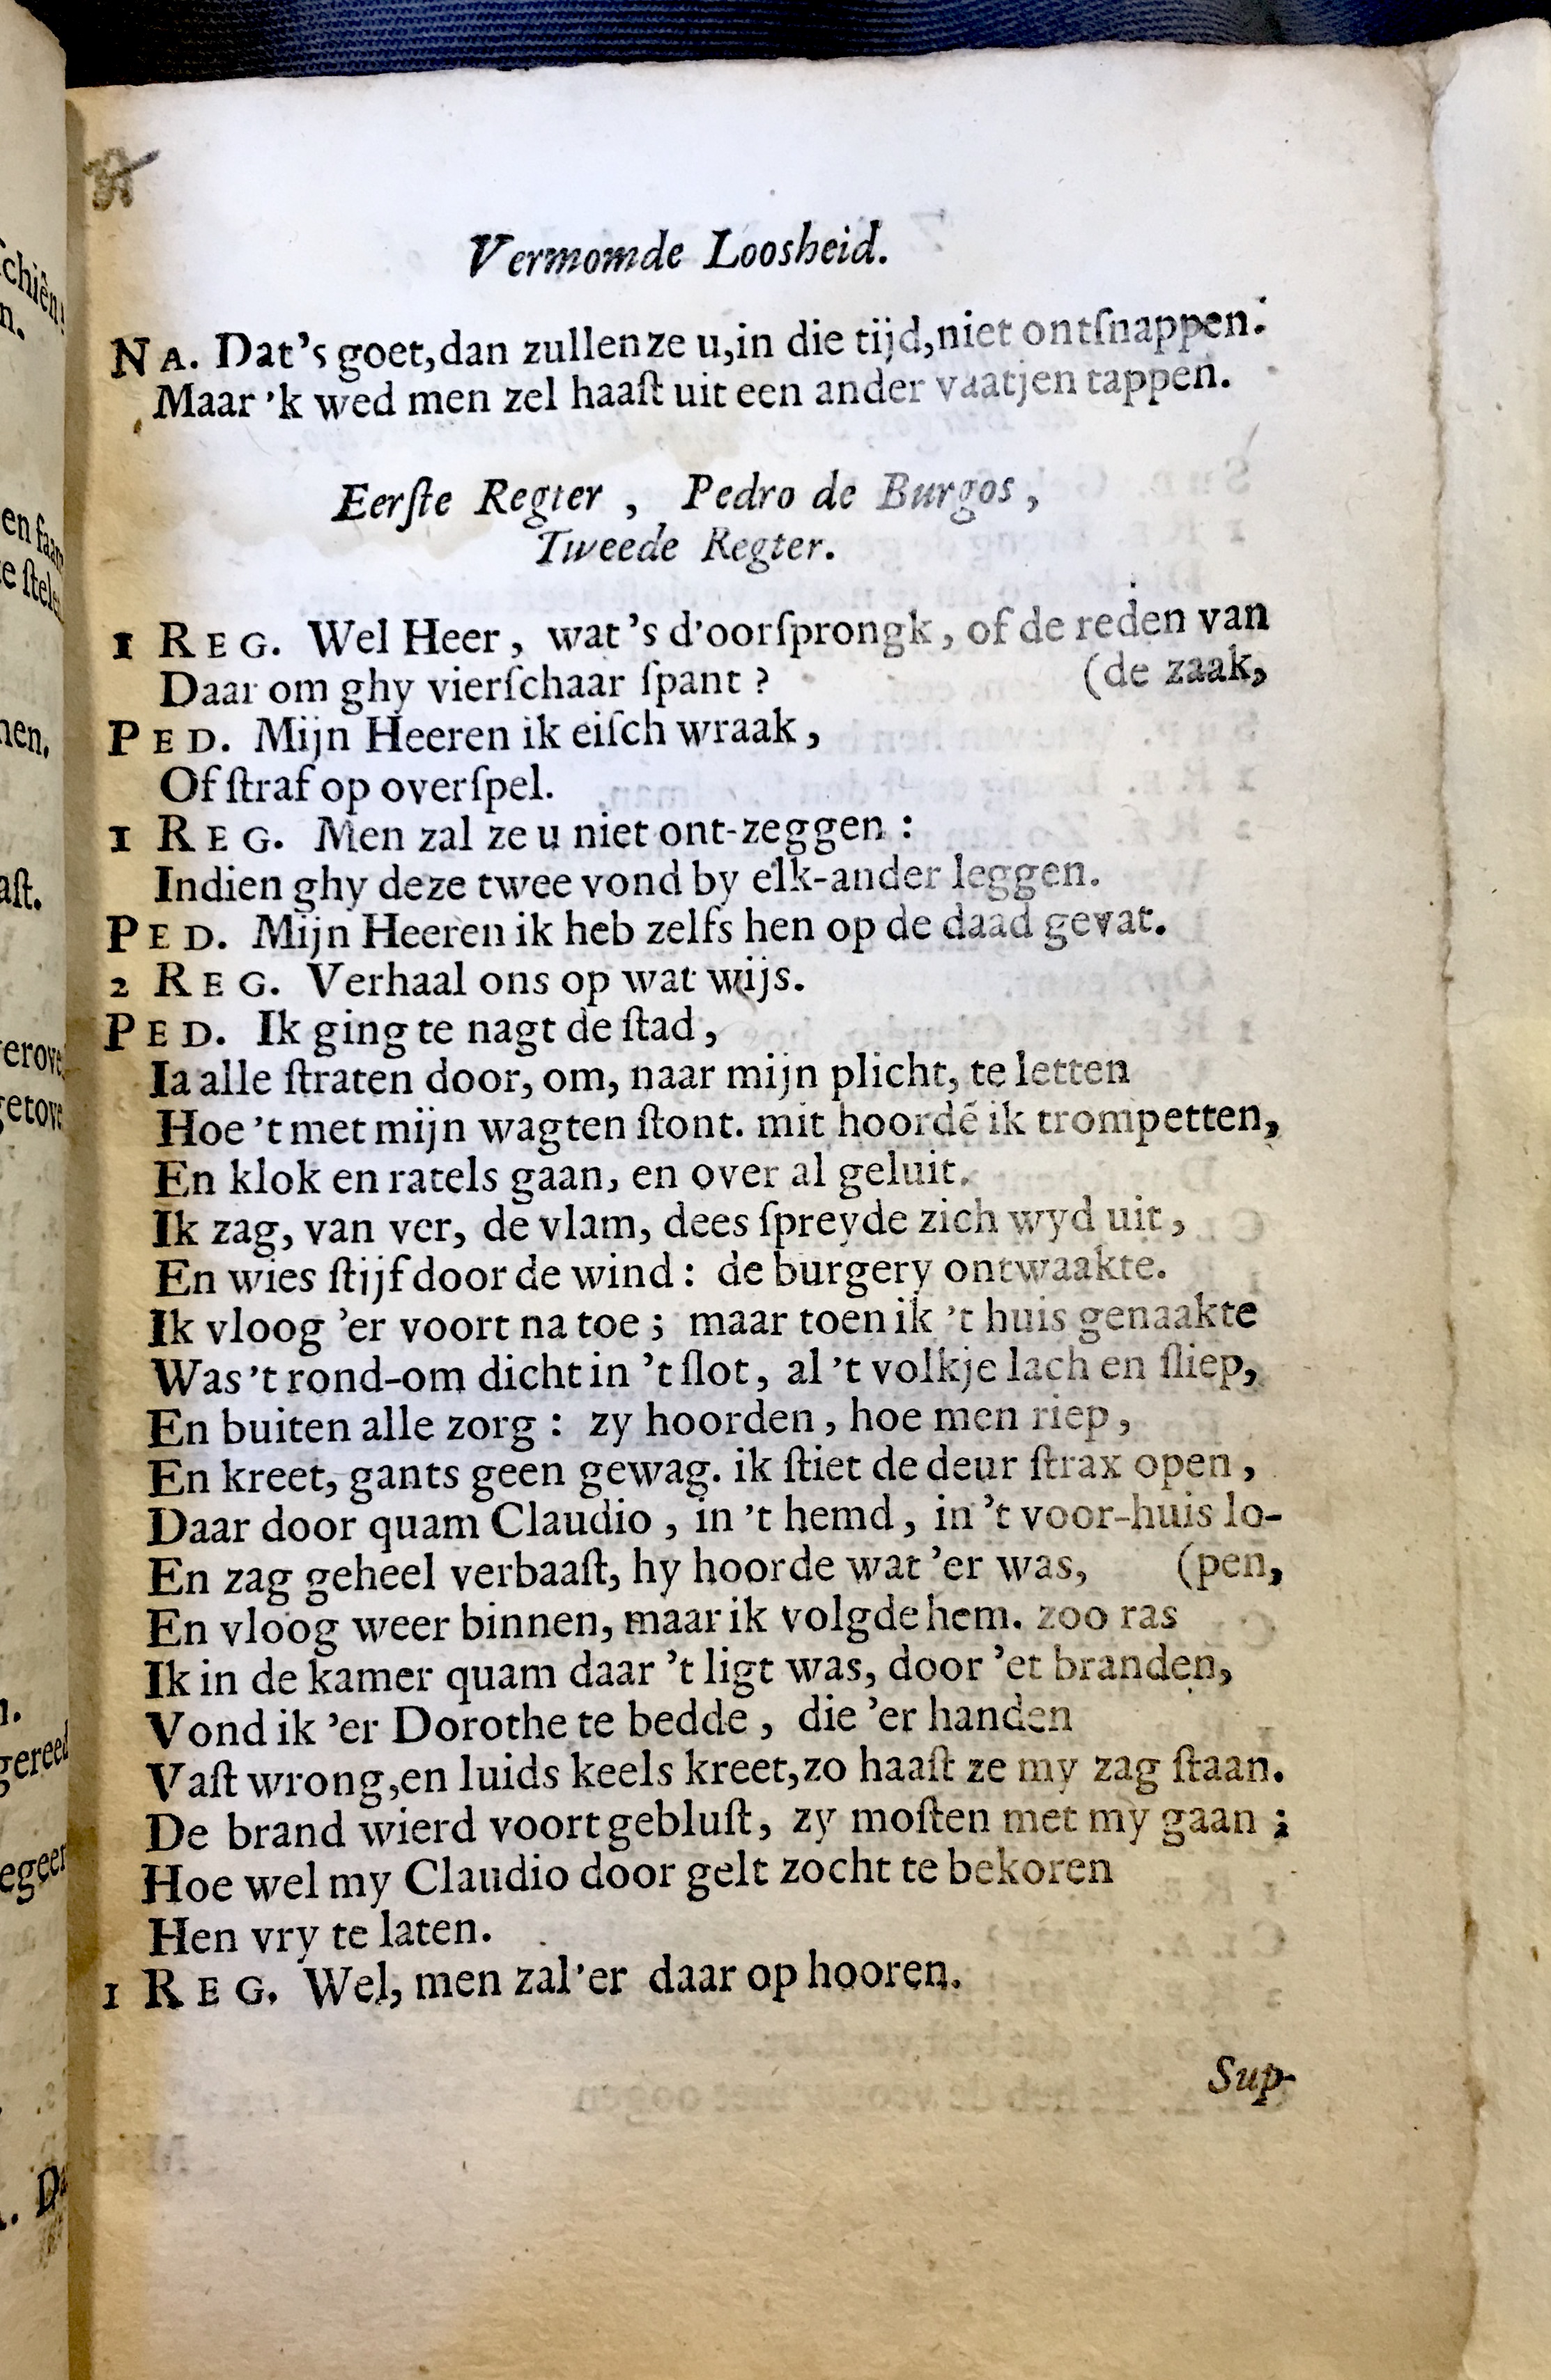 Vermomde Loosheid.
NA. Dat's goet, dan zullenze u, in die tijd, niet ontſnappen.
Maar 'k wed men zel haaſt uit een ander vaatjen tappen.
Eerſte Regter, Pedro de Burgos,
Tweede Regter.
1 REG. Wel Heer, wat's d'oorſprongk, of de reden van
Daar om ghy vierſchaar ſpant? (de zaak,
PED. Mijn Heeren ik eiſch wraak,
Of ſtraf op overſpel.
1 REG. Men zal ze u niet ont-zeggen:
Indien ghy deze twee vond by elk-ander leggen.
PED. Mijn Heeren ik heb zelfs hen op de daad gevat.
2 REG. Verhaal ons op wat wijs.
PED. Ik ging te nagt de ſtad,
Ia alle ſtraten door, om, naar mijn plicht, te letten
Hoe 't met mijn wagten ſtont. mit hoorde ik trompetten,
En klok en ratels gaan, en over al geluit.
Ik zag, van ver, de vlam, dees ſpreyde zich wyd uit,
En wies ſtijf door de wind: de burgery ontwaakte.
Ik vloog 'er voort na toe; maar toen ik 't huis genaakte
Was 't rond-om dicht in 't ſlot, al 't volkje lach en ſliep,
En buiten alle zorg: zy hoorden, hoe men riep,
En kreet, gants geen gewag. ik ſtiet de deur ſtrax open,
Daar door quam Claudio, in 't hemd, in 't voor-huis lo-
En zag geheel verbaaſt, hy hoorde wat 'er was, (pen,
En vloog weer binnen, maar ik volgde hem. zoo ras
Ik in de kamer quam daar 't ligt was, door 'et branden,
Vond ik 'er Dorothe te bedde, die 'er handen
Vaſt wrong, en luids keels kreet, zo haaſt ze my zag ſtaan.
De brand wierd voort gebluſt, zy moſten met my gaan;
Hoe wel my Claudio door gelt zocht te bekoren
Hen vry te laten.
1 REG. Wel, men zal'er daar op hooren.
Sup-